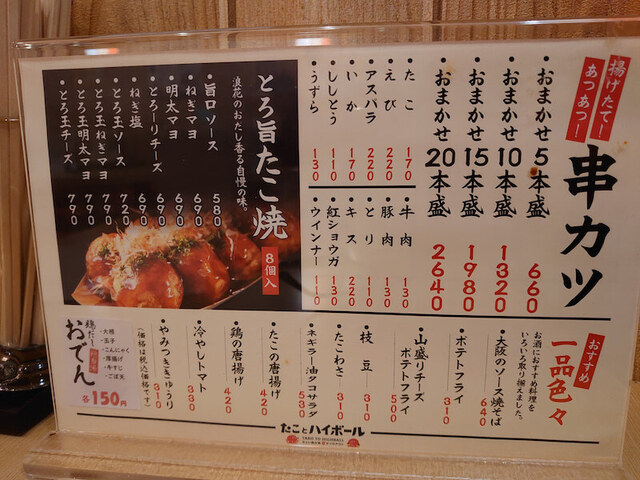 揚げたてー
あつあつー！
串カツ
・おまかせ5本盛 660
・おまかせ10本盛 1320
・おまかせ15本盛 1980
・おまかせ20本盛 2640
・たこ 170
・えび 220
・アスパラ 220
・いか 170
・ししとう 110
・うずら 130
・牛肉 130
・豚肉 130
・とり 110
・キス 220
・紅ショウガ 130
・ウインナー 110
とろ旨たこ焼
浪花のおだし香る自慢の味。
8個入
・旨口ソース 580
・ねぎマヨ 690
・明太マヨ 690
・とろーりチーズ 690
・ねぎ塩 690
・とろ玉ソース 720
・とろ玉ねぎマヨ 790
・とろ玉明太マヨ 790
・とろ玉チーズ 790
おすすめ
一品色々
お酒におすすめ料理を
いろいろ取り揃えました。
・大阪のソース焼そば 640
・ポテトフライ 310
・山盛りチーズ
ポテトフライ 500
・枝豆 310
・たこわさ 310
・ネギラー油タコサラダ 530
・たこの唐揚げ 420
・鶏の唐揚げ 420
・冷やしトマト 330
・やみつききゅうり 310
(価格は税込価格です)
鶏だし
おでん
・大根
・玉子
・こんにゃく
・厚揚げ
・牛すじ
・ごぼ天
各150円
たことハイボール
TAKO TO HIGHBALL